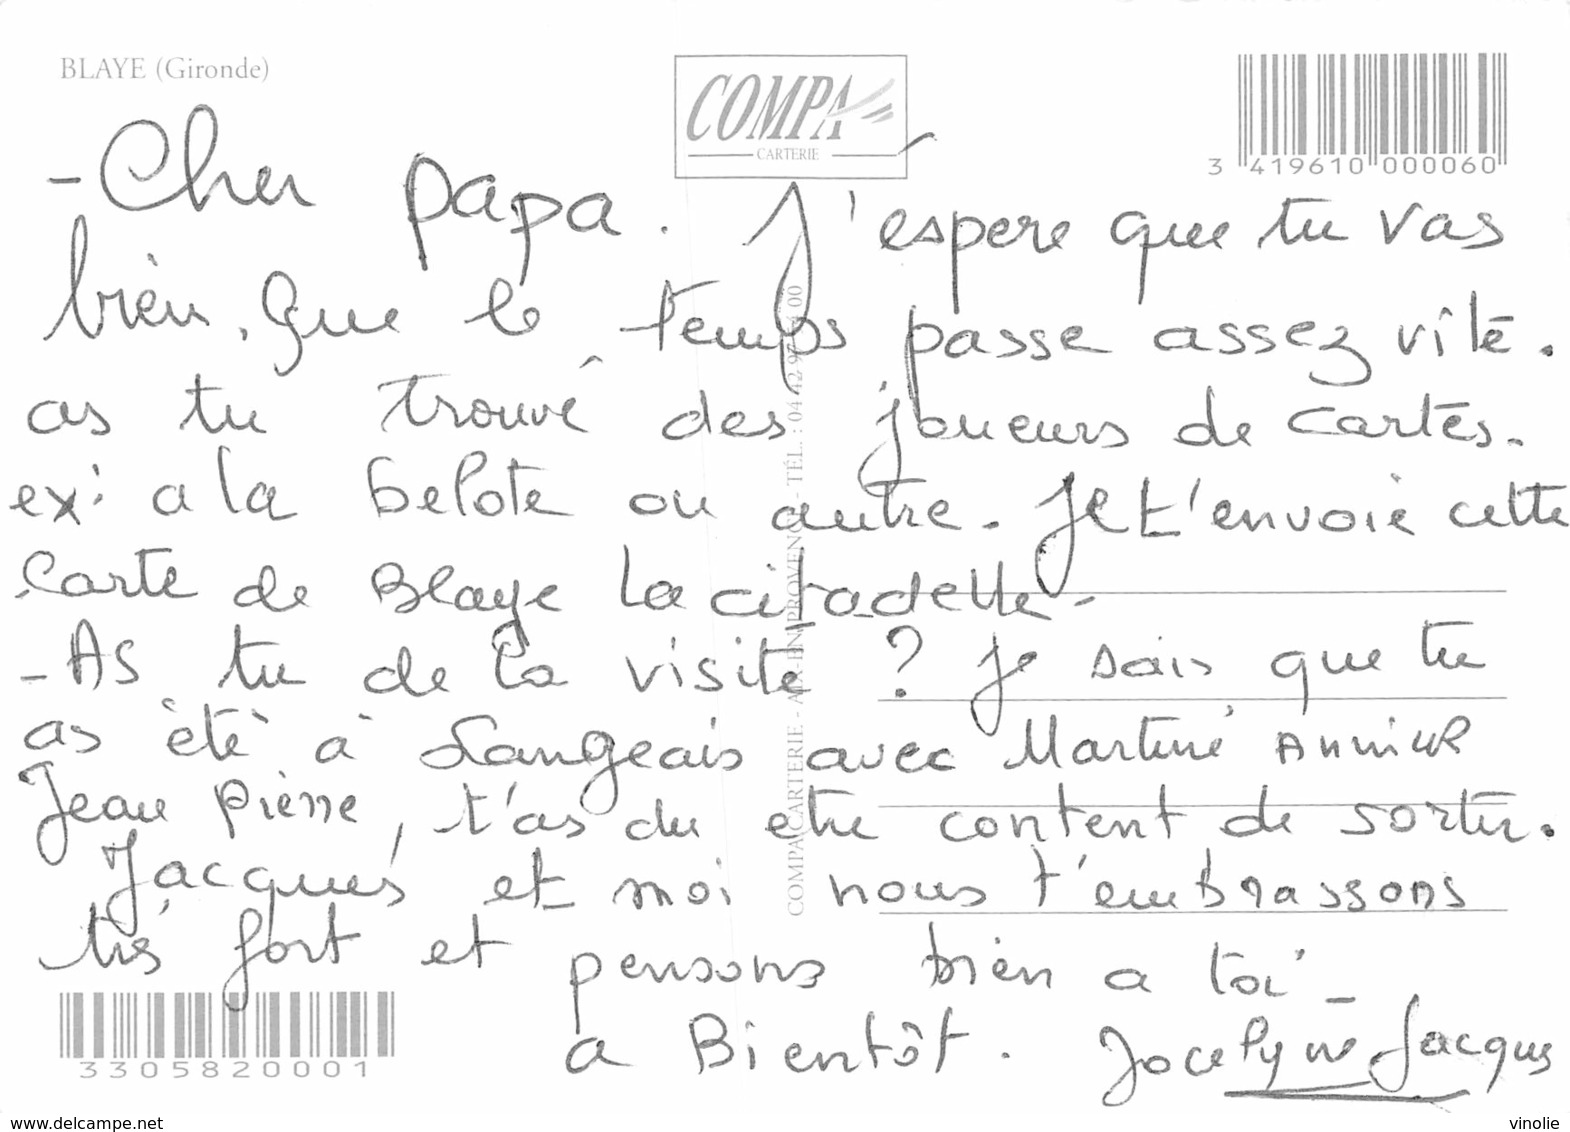 BLAYE (Gironde)
COMPA
CARTERIE
3 419610 000060
- Cher papa. J'espere que tu vas
bien, que le temps passe assez vite.
as tu trouvé des joueurs de cartes.
ex: a la belote ou autre. Je t'envoie cette
Carte de Blaye la citadelle -
- As tu de la visite ? je sais que tu
as èté à Langeais avec Martine Annick
Jean pierre, t'as du etre content de sortir.
Jacques et moi nous t'embrassons
très fort et pensons bien a toi -
a Bientôt. Jocelyne Jacques
COMPA CARTERIE - AIX EN PROVENCE - TÉL. : 04 42 97 00
3305820001
www.delcampe.net
vinolie